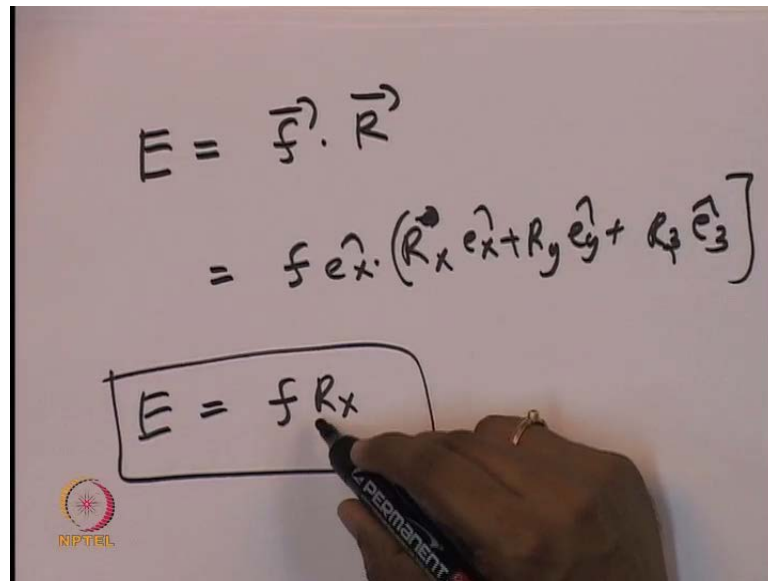 E = f⃗ . R⃗
= f êx . (Rx êx + Ry êy + Rz êz]
E = f Rx
PERMANENT
NPTEL